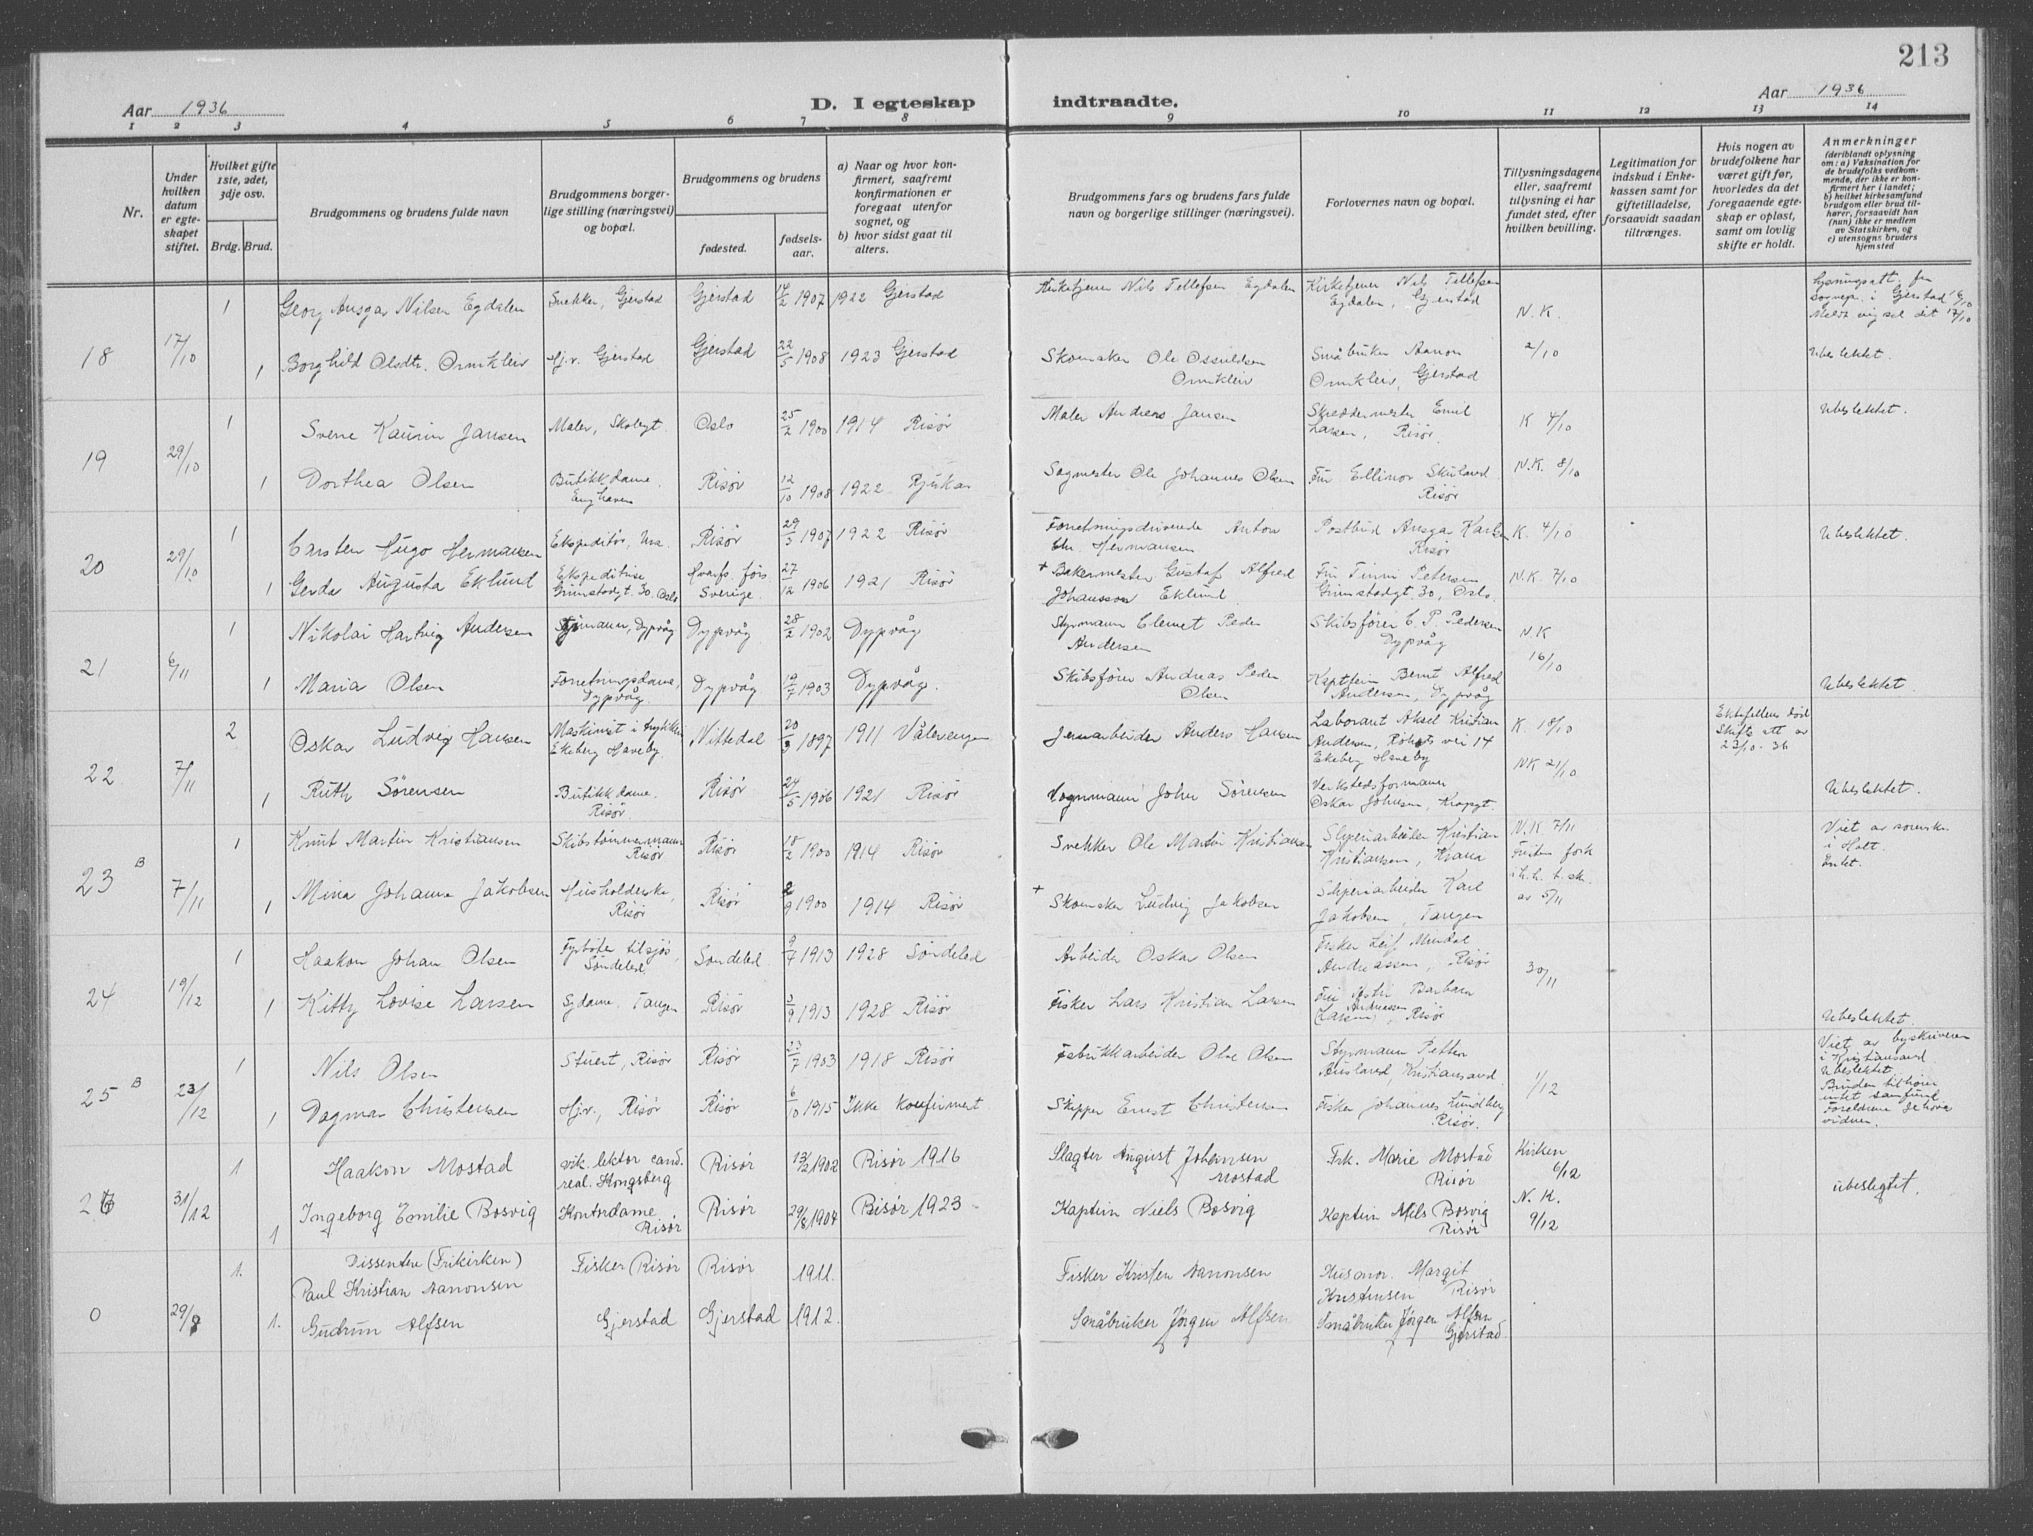 213
Aar 1936
D. I egteskap indtraadte.
Aar 1936
1 2 3 4 5 6 7 8 9 10 11 12 13 14
Nr.
Under hvilken datum er egteskapet stiftet.
Hvilket gifte 1ste, 2det, 3dje osv.
Brdg. Brud.
Brudgommens og brudens fulde navn
Brudgommens borgerlige stilling (næringsvei) og bopæl.
Brudgommens og brudens
fødested.
fødselsaar.
a) Naar og hvor konfirmert, saafremt konfirmationen er foregaat utenfor sognet, og
b) hvor sidst gaat til alters.
Brudgommens fars og brudens fars fulde navn og borgerlige stillinger (næringsvei).
Forlovernes navn og bopæl.
Tillysningsdagene eller, saafremt tillysning ei har fundet sted, efter hvilken bevilling.
Legitimation for indskud i Enkekassen samt for giftetilladelse, forsaavidt saadan tiltrænges.
Hvis nogen av brudefolkene har været gift før, hvorledes da det foregaaende egteskap er opløst, samt om lovlig skifte er holdt.
Anmerkninger
(deriblandt oplysning om: a) Vaksination for de brudefolks vedkommende, der ikke er konfirmert her i landet;
b) hvilket kirkesamfund brudgom eller brud tilhører, forsaavidt han (hun) ikke er medlem av Statskirken, og
c) utensogns bruders hjemsted
18 17/10
1 Georg Ansgar Nilsen Egdalen Snekker, Gjerstad Gjerstad 14/2 1907 1922 Gjerstad Kirketjener Nils Tellefsen Egdalen Kirketjener Nils Tellefsen Egdalen, Gjerstad N.K. 2/10 Lysningsatt. fra sognepr. i Gjerstad 16/10 Meldt vigsel dit 17/10
1 Borghild Olsdtr. Ormkleiv Hjv. Gjerstad Gjerstad 22/5 1908 1923 Gjerstad Skomaker Ole Ossuldsen Ormkleiv Småbruker Aanon Ormkleiv, Gjerstad Ubeslektet.
19 29/10
1 Sverre Kaurin Jansen Maler, Skolegt Oslo 25/2 1900 1914 Risør Maler Andreas Jansen Skreddermester Emil Larsen, Risør. K 4/10 Ubeslektet.
1 Dorthea Olsen Butikkdame. Enghaven Risør 12/10 1908 1922 Rjukan Sagmester Ole Johannes Olsen Fru Ellinor Skuland Risør N.K. 8/10
20 29/10
1 Carsten Hugo Hermansen Ekspeditør, Risør 29/3 1907 1922 Risør Forretningsdrivende Anton Chr. Hermansen Postbud Ansgar Karlsen Risør K. 4/10 Ubeslektet.
1 Gerda Augusta Eklund Ekspeditrise Grimstadgt. 30. Oslo Sverige. 27/12 1906 1921 Risør + Bakermester Gustaf Alfred Johansson Eklund. Fru Petersen Grimstadgt. 30, Oslo. N.K. 7/10
21 6/11
1 Nikolai Hartvig Andersen Styrmann, Dypvåg Dypvåg 28/2 1902 Dypvåg Styrmann Clemet Peder Andersen Skibsfører C. P. Pedersen Dypvåg N.K 16/10
1 Maria Olsen Forretningsdame, Dypvåg. Dypvåg 19/7 1903 Dypvåg. Skibsfører Andreas Peder Olsen Kaptein Bernt Alfred Andersen, Dypvåg Ubeslektet.
22 7/11
2 Oskar Ludvig Hansen Maskinist i Ekeberg Haveby. Nittedal 20/3 1897 1911 Vålerengen Jernarbeider Anders Hansen Laborant Aksel Kristian Andersen, vei 14 Ekeberg Haveby K. 18/10 Ektefellens død Skifte att av 23/10. 36
1 Ruth Sørensen Butikkdame. Risør. Risør 24/5 1906 1921 Risør Vognmann John Sørensen Verkstedsformann Oskar Johnsen, Kragsgt. NK 21/10 Ubeslektet.
23 B 7/11
1 Knut Martin Kristiansen Skibstømmermann Risør Risør 18/2 1900 1914 Risør Snekker Ole Martin Kristiansen Sliperiarbeider Kristian Kristiansen, Krana N.K 7/11 Fristen fork. i h. h. t. sk. av 5/11 Viet av sorenskr. i Holt. Enkel.
1 Mina Johanne Jakobsen Husholderske, Risør Risør 2/9 1900 1914 Risør + Skomaker Ludvig Jakobsen Sliperiarbeider Karl Jakobsen, Tangen
24 19/12
1 Haakon Johan Olsen Fyrbøter tilsjøs, Søndeled Søndeled 9/7 1913 1928 Søndeled Arbeider Oskar Olsen Fisker Leif Mindal Andreassen, Risør 30/11
1 Kitty Lovise Larsen Sydame, Tangen Risør 3/9 1913 1928 Risør Fisker Lars Kristian Larsen Fru Astri Barbara Andreassen (Larsen), Risør Ubeslektet.
25 B 23/12
1 Nils Olsen Stuert, Risør Risør 23/7 1903 1918 Risør Fabrikkarbeider Olve Olsen Styrmann Petter Ausland, Kristiansand 1/12 Viet av byskriveren i Kristiansand. Ubeslektet
1 Dagmar Christensen Hjv., Risør Risør 6/10 1915 Ikke konfirmert Skipper Ernst Christensen Fisker Johannes Lundberg Risør. Bruden tilhører intet samfund Foreldrene Jehovas vidner.
26 31/12
1 Haakon Mostad vik. lektor cand. real. Kongsberg Risør 13/2 1902 Risør 1916 Slagter August Johansen Mostad Frk. Marie Mostad Risør Kirken 6/12 ubeslegtet.
1 Ingeborg Emilie Bosvig Kontordame Risør Risør 29/8 1904 Risør 1923 Kaptein Niels Bosvig Kaptein Nils Bosvig Risør N. K. 9/12
0 29/8
Dissentere (Frikirken)
1. Paul Kristian Aanonsen Fisker Risør Risør 1911. Fisker Kristen Aanonsen Husmor. Margit Kristensen Risør
1. Gudrun Alfsen Gjerstad Gjerstad 1912. Småbruker Jørgen Alfsen Småbruker Jørgen Alfsen Gjerstad.